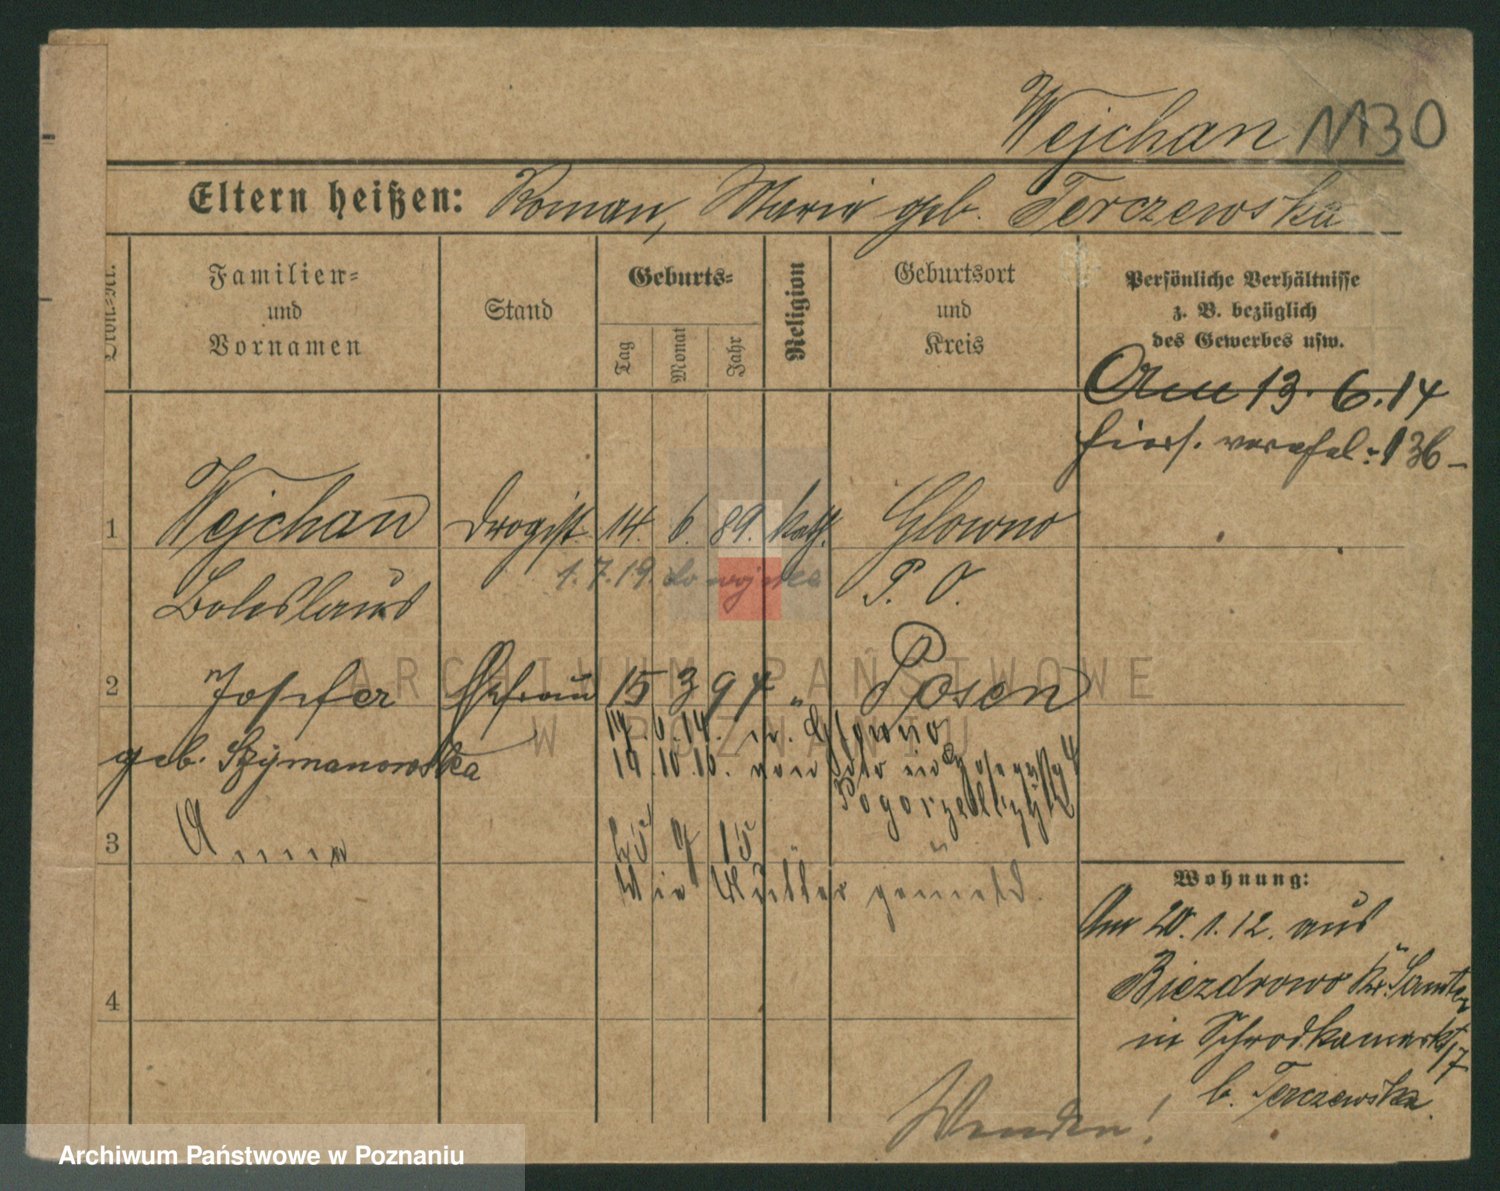 Wejchan 1130
Eltern heißen: Roman, Maria geb. Terczewska
Familien- und Vornamen
Stand
Geburts-
Tag Monat Jahr
Religion
Geburtsort und Kreis
Persönliche Verhältnisse
z. B. bezüglich
des Gewerbes usw.
Am 13.6.14
hiers. :136-
1 Wejchan Drogist 14. 6. 89. kath. Glowno
1.7.19. do wojska
Boleslaus P. O.
2 Josefa Ehefrau 15 3 94 " Posen
17.6.14. n. Glowno
geb. Szymanowska 14.10.16. von
3 Anna 25 7 15 " "
Wie Mutter gemeld.
4
Wohnung:
Am 20.1.12. aus
Biezdrowo Kr. Samter
in Schrodkamarkt 17
b. Terczewska.
Wenden!
ARCHIWUM PAŃSTWOWE
W POZNANIU
Archiwum Państwowe w Poznaniu